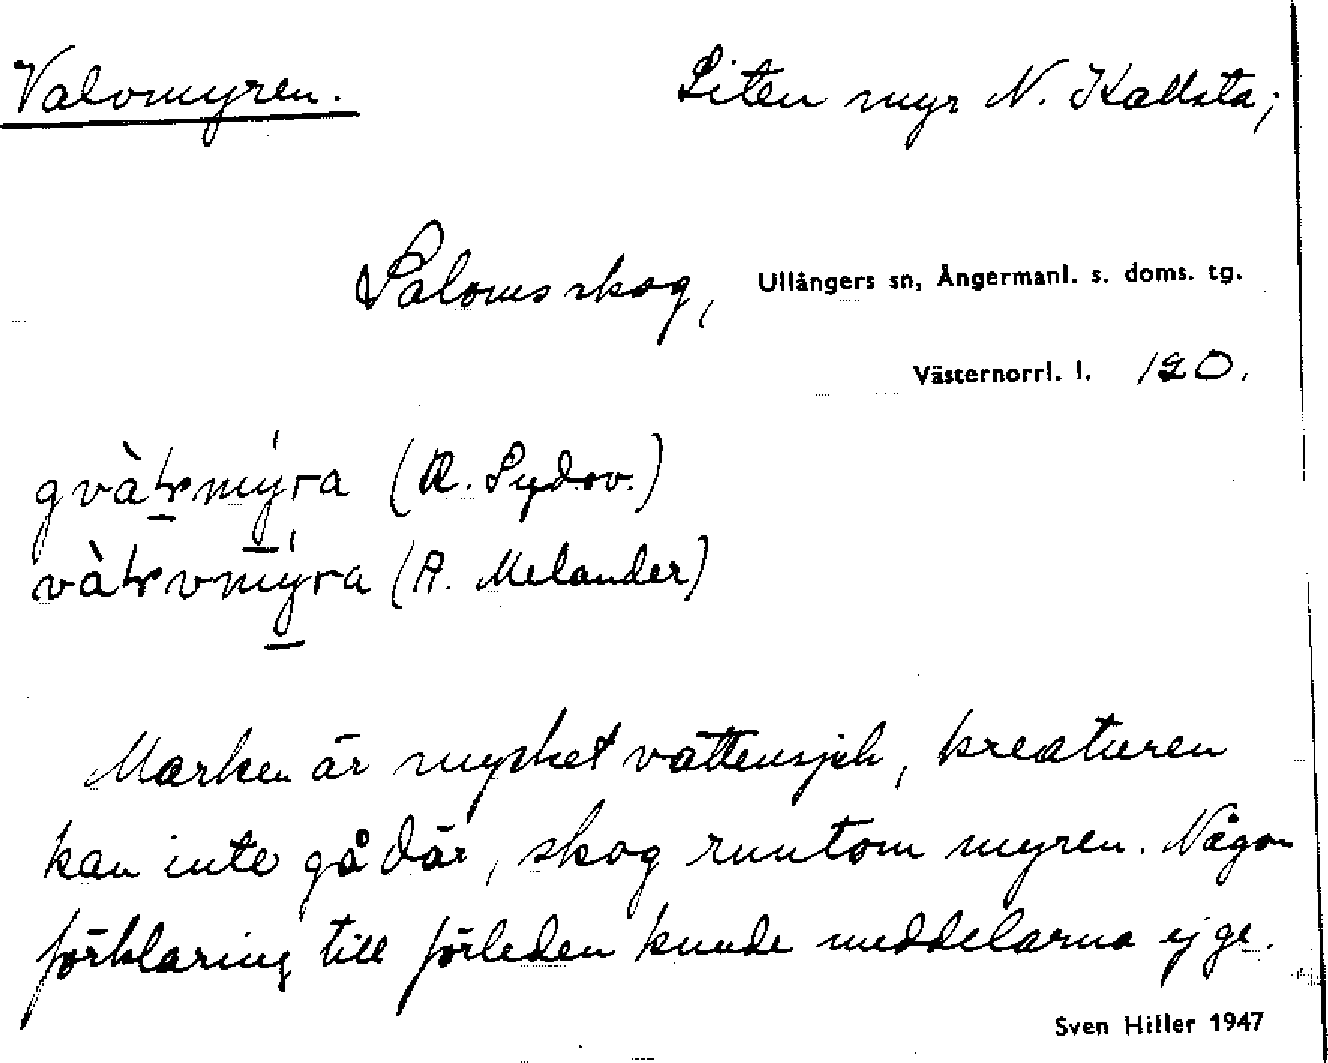 Valomyren. Liten myr N. Kallsta;
Saloms skog, Ullångers sn, Ångermanl. s. doms. tg.
Västernorrl. l. 120.
(A. Sydow.)
(A. Melander)
Marken är mycket vattensjuk, kreaturen
kan inte gå där, skog runtom myren. Någon
förklaring till förleden kunde meddelarna ej ge.
Sven Hiller 1947